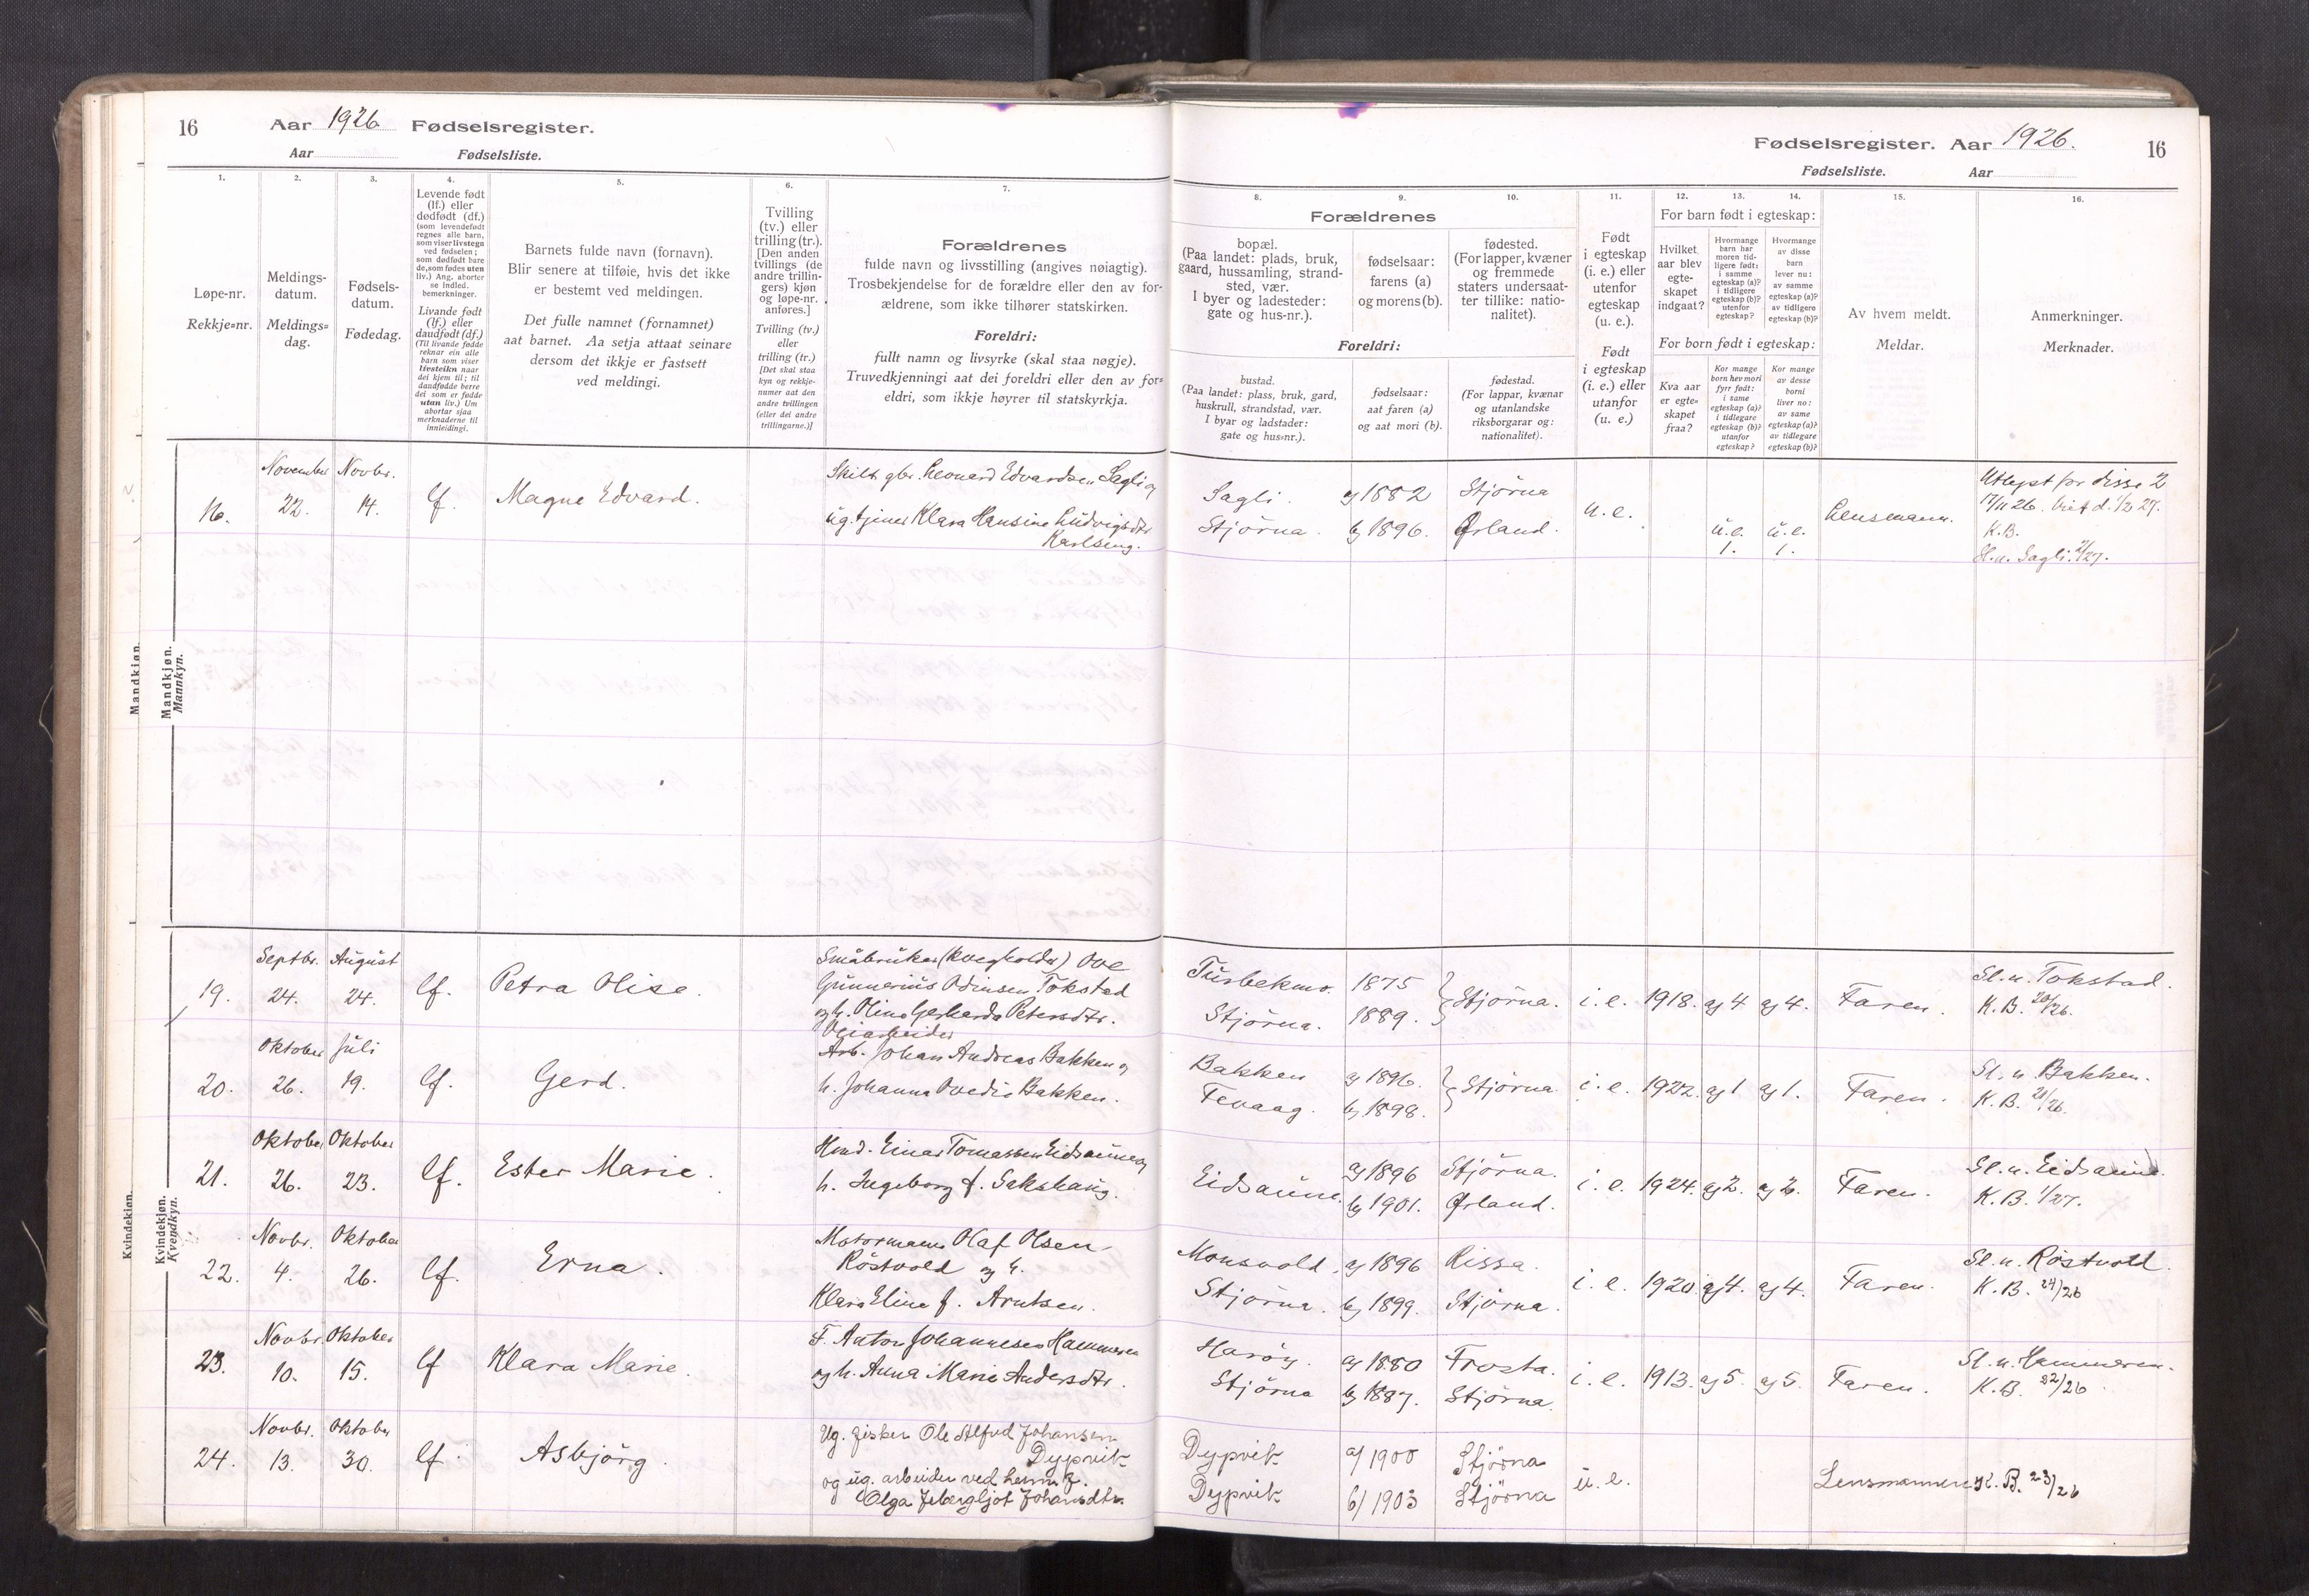 16 Aar 1926 Fødselsregister.
Aar Fødselsliste.
Fødselsregister. Aar 1926. 16
Fødselsliste. Aar
1.
Løpe-nr.
Rekkje=nr.
2.
Meldings-
datum.
Meldings=
dag.
3.
Fødsels-
datum.
Fødedag.
4.
Levende født
(lf.) eller
dødfødt (df.)
(som levendefødt
regnes alle barn,
som viser livstegn
ved fødselen;
som dødfødt bare
de, som fødes uten
liv.) Ang. aborter
se indled.
bemerkninger.
Livande født
(lf.) eller
daudfødt (df.)
(Til livande fødde
reknar ein alle
barn som viser
livsteikn naar
dei kjem til; til
daudfødde berre
dei som er fødde
utan liv.) Um
abortar sjaa
merknaderne til
innleidingi.
5.
Barnets fulde navn (fornavn).
Blir senere at tilføie, hvis det ikke
er bestemt ved meldingen.
Det fulle namnet (fornamnet)
aat barnet. Aa setja attaat seinare
dersom det ikkje er fastsett
ved meldingi.
6.
Tvilling
(tv.) eller
trilling (tr.).
[Den anden
tvillings (de
andre trillin-
gers) kjøn
og løpe-nr.
anføres.]
Tvilling (tv.)
eller
trilling (tr.)
[Det skal staa
kyn og rekkje-
numer aat den
andre tvillingen
(eller dei andre
trillingarne.)]
7.
Forældrenes
fulde navn og livsstilling (angives nøiagtig).
Trosbekjendelse for de forældre eller den av for-
ældrene, som ikke tilhører statskirken.
Foreldri:
fullt namn og livsyrke (skal staa nøgje).
Truvedkjenningi aat dei foreldri eller den av for=
eldri, som ikkje høyrer til statskyrkja.
Forældrenes
8.
bopæl.
(Paa landet: plads, bruk,
gaard, hussamling, strand-
sted, vær.
I byer og ladesteder:
gate og hus-nr.).
9.
fødselsaar:
farens (a)
og morens (b).
10.
fødested.
(For lapper, kvæner
og fremmede
staters undersaat-
ter tillike: natio-
nalitet).
Foreldri:
bustad.
(Paa landet: plass, bruk, gard,
huskrull, strandstad, vær.
I byar og ladstader:
gate og hus=nr.).
fødselsaar:
aat faren (a)
og aat mori (b).
fødestad.
(For lappar, kvænar
og utanlandske
riksborgarar og:
nationalitet).
11.
Født
i egteskap
(i. e.) eller
utenfor
egteskap
(u. e.).
Født
i egteskap
(i. e.) eller
utanfor
(u. e.)
For barn født i egteskap:
12.
Hvilket
aar blev
egte-
skapet
indgaat?
13.
Hvormange
barn har
moren tid-
ligere født:
i samme
egteskap (a)?
i tidligere
egteskap (b)?
utenfor
egteskap?
14.
Hvormange
av disse
barn
lever nu:
av samme
egteskap (a)?
av tidligere
egteskap (b)?
For born født i egteskap:
Kva aar
er egte=
skapet
fraa?
Kor mange
born hev mori
fyrr født:
i same
egteskap (a)?
i tidlegare
egteskap (b)?
utanfor
egteskap?
Kor mange
av desse
borni
liver no:
av same
egteskap (a)?
av tidlegare
egteskap (b)?
15.
Av hvem meldt.
Meldar.
16.
Anmerkninger.
Merknader.
Mandkjøn.
Mandkjøn.
Mannkyn.
November Novbr.
16. 22. 14. lf. Magne Edvard.
Skilt gbr. Leonard Edvardsen Sagli og
ug. tjener Klara Hansine Ludvigsdtr
Karlseng.
Sagli. a) 1882 Stjörna
Stjörna. b) 1896. Ørland.
u. e. u.e. 1. u.e. 1.
Lensmann.
K.B.
Sl. n. Sagli.
Kvindekjøn.
Kvindekjøn.
Kvendkyn.
Septbr. August
19. 24. 24. lf. Petra Olise.
Småbruker (kvegholder) Ove
Gunnerius Odinsen Tokstad
og h. Oline Gerharda Petersdtr.
Tursbekmo. 1875
Stjörna. 1889. Stjörna. i. e. 1918. a) 4 a) 4. Faren.
Sl. n. Tokstad.
K. B. 20/26.
Oktober Juli
20. 26. 19. lf. Gerd.
Veiarbeider
Arb. Johan Andreas Bakken og
h. Johanna Ovedie Bakken.
Bakken a) 1896.
Fevaag. b) 1898. Stjörna i. e. 1922. a) 1 a) 1. Faren.
Sl. n. Bakken.
K. B. 21/26.
Oktober Oktober
21. 26. 23. lf. Ester Marie.
Hmd. Einar Tomassen Eidsaune og
h. Ingeborg f. Sakshaug.
Eidsaune. a) 1896 Stjörna.
b) 1901. Ørland. i. e. 1924. a) 2. a) 2. Faren.
Sl. n. Eidsaune.
K. B. 1/27.
Novbr. Oktober
22. 4. 26. lf. Erna.
Motormann Olaf Olsen
Röstvold og h.
Klara Eline f. Arntsen.
Monsvold. a) 1896 Rissa.
Stjörna. b) 1899. Stjörna. i. e. 1920. a) 4. a) 4. Faren.
Sl. n. Röstvold.
K. B. 24/26
Novbr Oktober
23. 10. 15. lf Klara Marie.
F. Anton Johannesen Hammeren
og h. Anna Marie Andersdtr.
Harøy. a) 1880 Frosta.
Stjörna b) 1887. Stjörna. i. e. 1913. a) 5. a) 5. Faren.
Sl. n. Hammeren.
K. B. 22/26
Novbr. Oktober
24. 13. 30. lf. Asbjörg.
Ug. fisker Ole Alfred Johansen
Dypvik
og ug. arbeider ved hermf.
Olga Jebergljot Johansdtr.
Dypvik a) 1900 Stjörna
Dypvik b) 1903 Stjörna u. e. Lensmannen K. B. 23/26